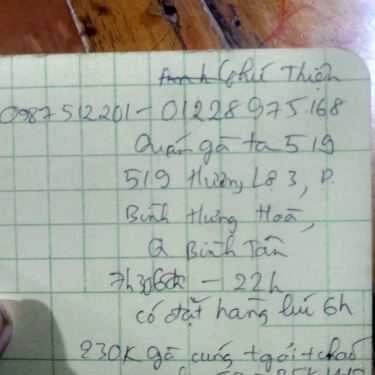 Chú Thiện
0987512201 - 01228975.168
Quán gà ta 519
519 Hương Lộ 3, P.
Bình Hưng Hoà,
Q Bình Tân
7h30 - 22h
có đặt hàng lúc 6h
230K gà cúng + gỏi + cháo